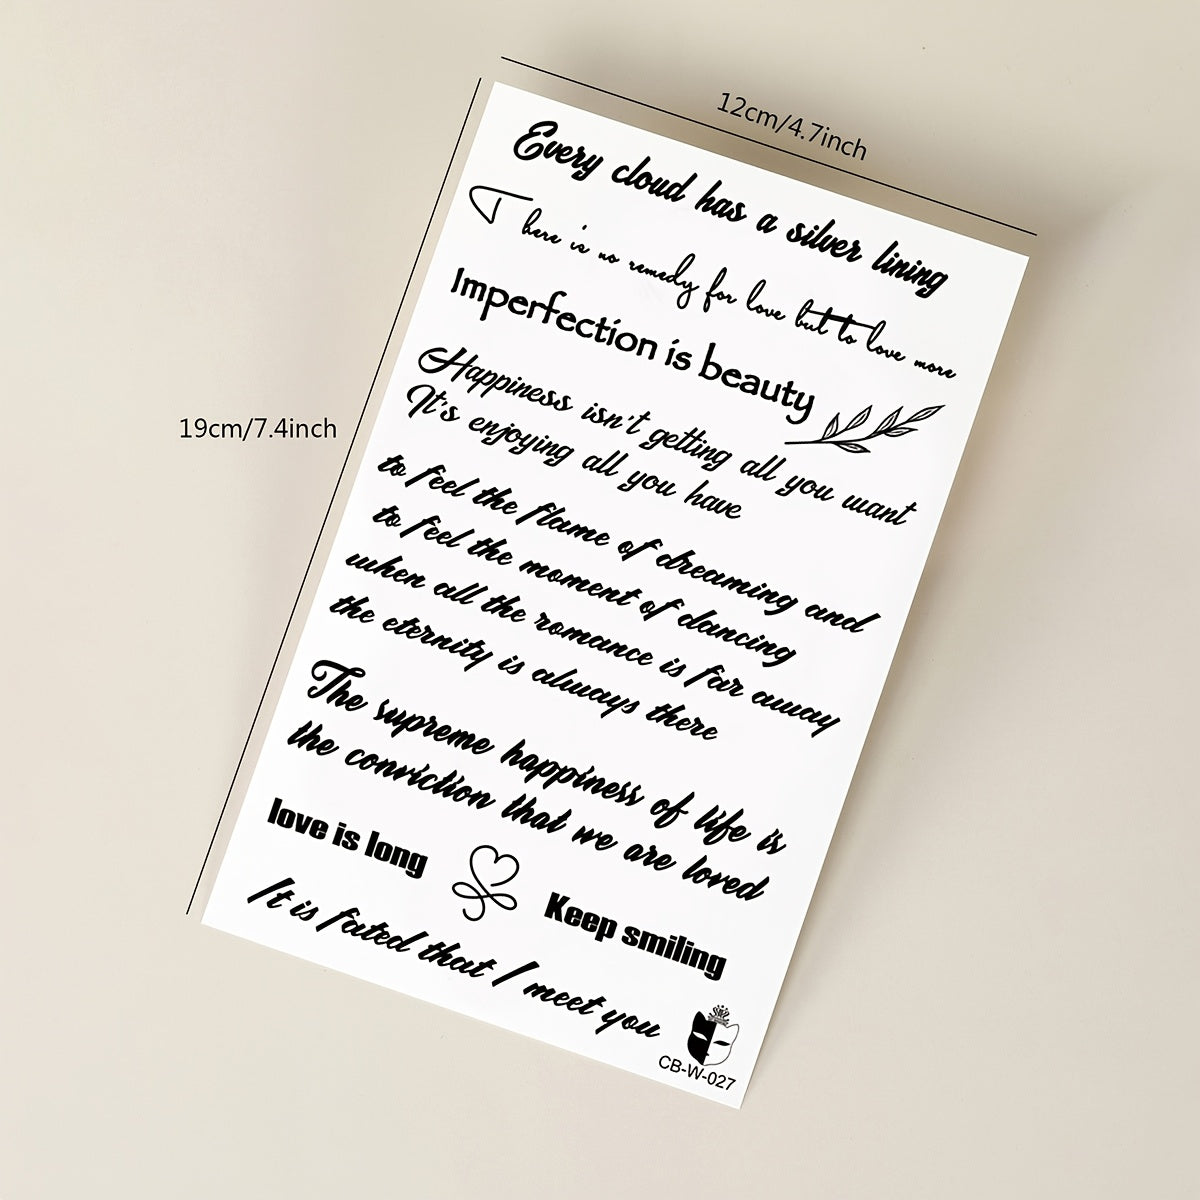 12cm/4.7inch
19cm/7.4inch
Every cloud has a silver lining
There is no remedy for love but to love more
Imperfection is beauty
Happiness isn't getting all you want
It's enjoying all you have
to feel the flame of dreaming and
to feel the moment of dancing
when all the romance is far away
the eternity is always there
The supreme happiness of life is
the conviction that we are loved
love is long
Keep smiling
It is fated that I meet you
CB-W-027